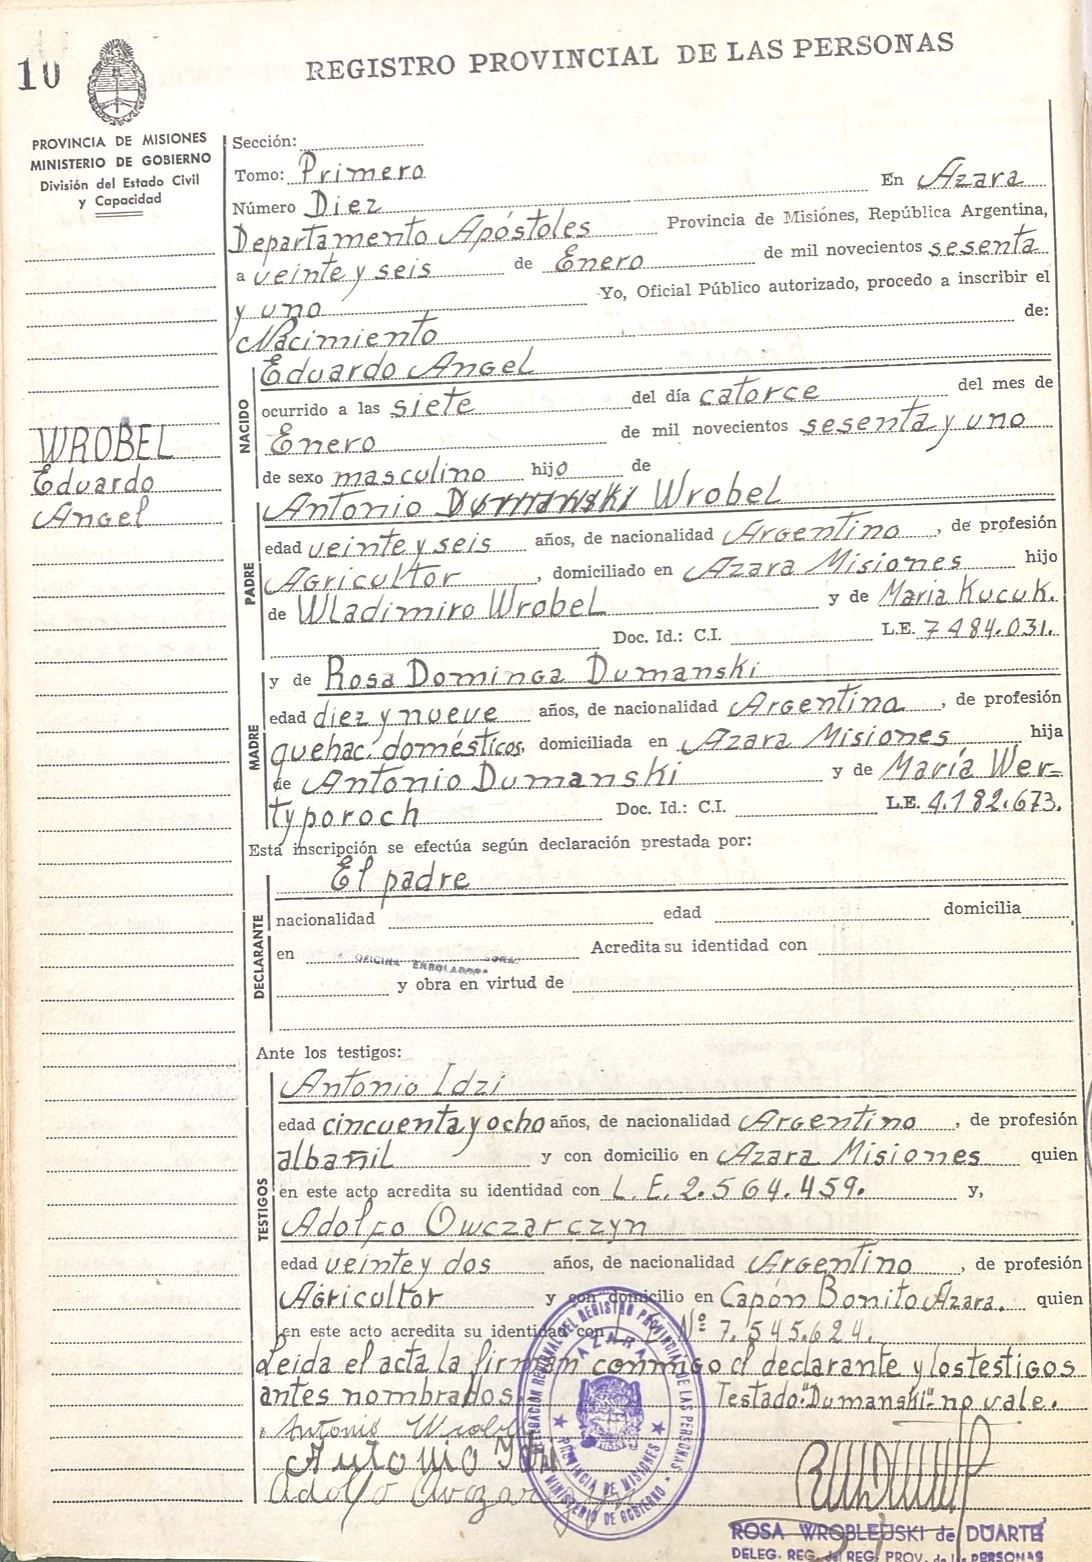 10
REGISTRO PROVINCIAL DE LAS PERSONAS
PROVINCIA DE MISIONES
MINISTERIO DE GOBIERNO
División del Estado Civil
y Capacidad
WROBEL
Eduardo
Angel
Sección:
Tomo: Primero
Número Diez En Azara
Departamento Apóstoles Provincia de Misiónes, República Argentina,
a veinte y seis de Enero de mil novecientos sesenta
y uno Yo, Oficial Público autorizado, procedo a inscribir el
Nacimiento de:
NACIDO
Eduardo Angel
ocurrido a las siete del día catorce del mes de
Enero de mil novecientos sesenta y uno
de sexo masculino hijo de
PADRE
Antonio Dumanski Wrobel
edad veinte y seis años, de nacionalidad Argentino, de profesión
Agricultor, domiciliado en Azara Misiones hijo
de Wladimiro Wrobel y de Maria Kucuk.
Doc. Id.: C.I. L.E. 7484.031.
MADRE
y de Rosa Dominga Dumanski
edad diez y nueve años, de nacionalidad Argentina, de profesión
quehac. domésticos, domiciliada en Azara Misiones hija
de Antonio Dumanski y de María Wer=
typoroch Doc. Id.: C.I. L.E. 4.182.673.
Esta inscripción se efectúa según declaración prestada por:
DECLARANTE
El padre
nacionalidad edad domicilia
en OFICINA Acredita su identidad con
y obra en virtud de
Ante los testigos:
TESTIGOS
Antonio Idzi
edad cincuenta y ocho años, de nacionalidad Argentino, de profesión
albañil y con domicilio en Azara Misiones quien
en este acto acredita su identidad con L.E. 2.564.459. y,
Adolfo Owczarczyn
edad veinte y dos años, de nacionalidad Argentino, de profesión
Agricultor y con domicilio en Capón Bonito Azara. quien
en este acto acredita su identidad con Nº 7.545.624.
Leida el acta la firman conmigo el declarante y los testigos
antes nombrados. Testado: "Dumanski" no vale.
Antonio
Antonio
Adolfo
DELEGACION REGIONAL DEL REGISTRO PROVINCIAL DE LAS PERSONAS
AZARA
PROVINCIA DE MISIONES
MINISTERIO DE GOBIERNO
ROSA WROBLEUSKI de DUARTE
DELEG. REG. del REG. PROV. de las PERSONAS